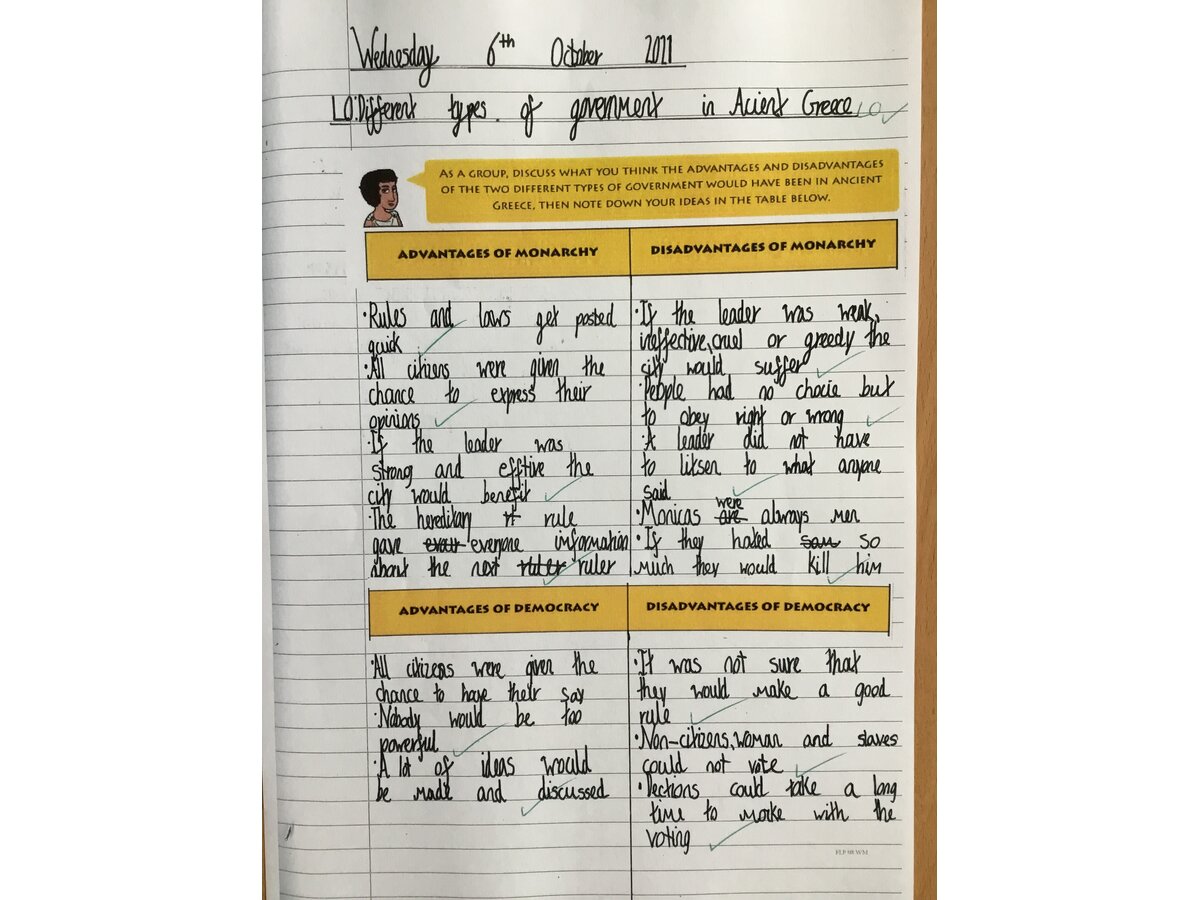 Wednesday 6th October 2021
LO:Different types. of government in Acient Greece LO
AS A GROUP, DISCUSS WHAT YOU THINK THE ADVANTAGES AND DISADVANTAGES
OF THE TWO DIFFERENT TYPES OF GOVERNMENT WOULD HAVE BEEN IN ANCIENT
GREECE, THEN NOTE DOWN YOUR IDEAS IN THE TABLE BELOW.
ADVANTAGES OF MONARCHY
·Rules and laws get posted
quick
·All citizens were given the
chance to express their
opinions
·If the leader was
strong and efftive the
city would benefit
·The hereditary rule
gave everyone information
about the next ruler
DISADVANTAGES OF MONARCHY
·If the leader was weak,
ineffective,cruel or greedy the
city would suffer
·People had no chocie but
to obey right or wrong
·A leader did not have
to litsen to what anyone
said
were
·Monicas are always men
·If they hated so
much they would kill him
ADVANTAGES OF DEMOCRACY
·All citizens were given the
chance to have their say
·Nobody would be too
powerful
·A lot of ideas would
be made and discussed
DISADVANTAGES OF DEMOCRACY
·It was not sure that
they would make a good
rule
·Non-citizens,woman and slaves
could not vote
·Dections could take a long
time to make with the
voting
FLP 08 WM